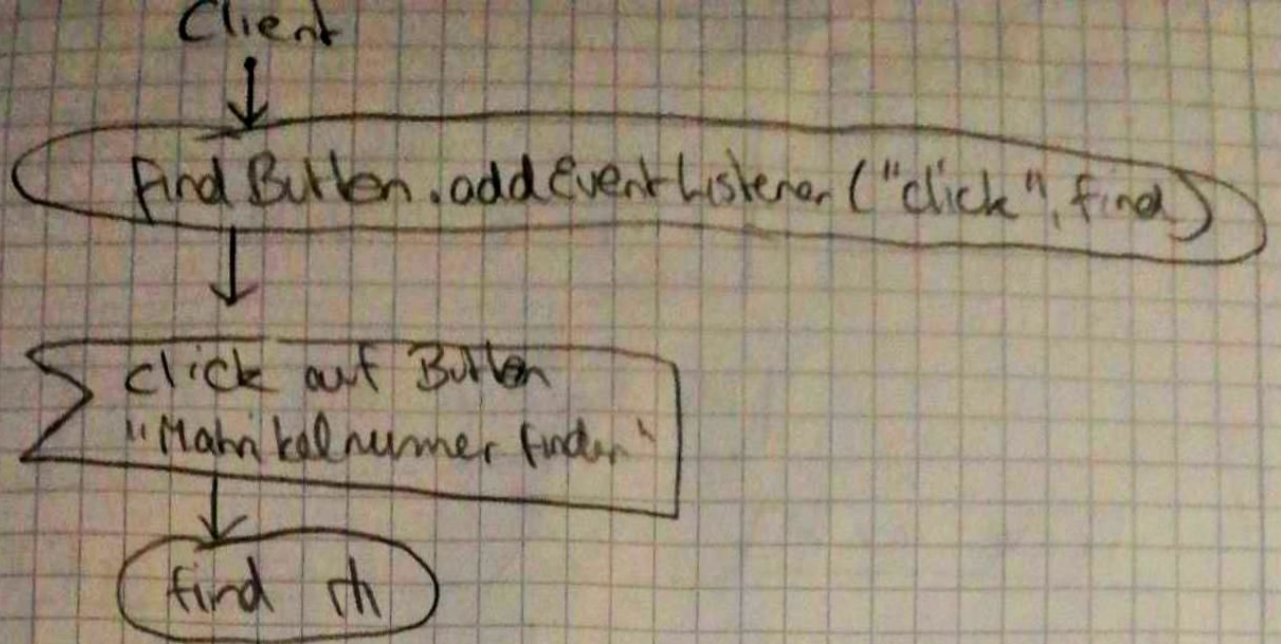 Client
findButton.addEventListener("click", find)
click auf Button
"Matrikelnumer finden"
find